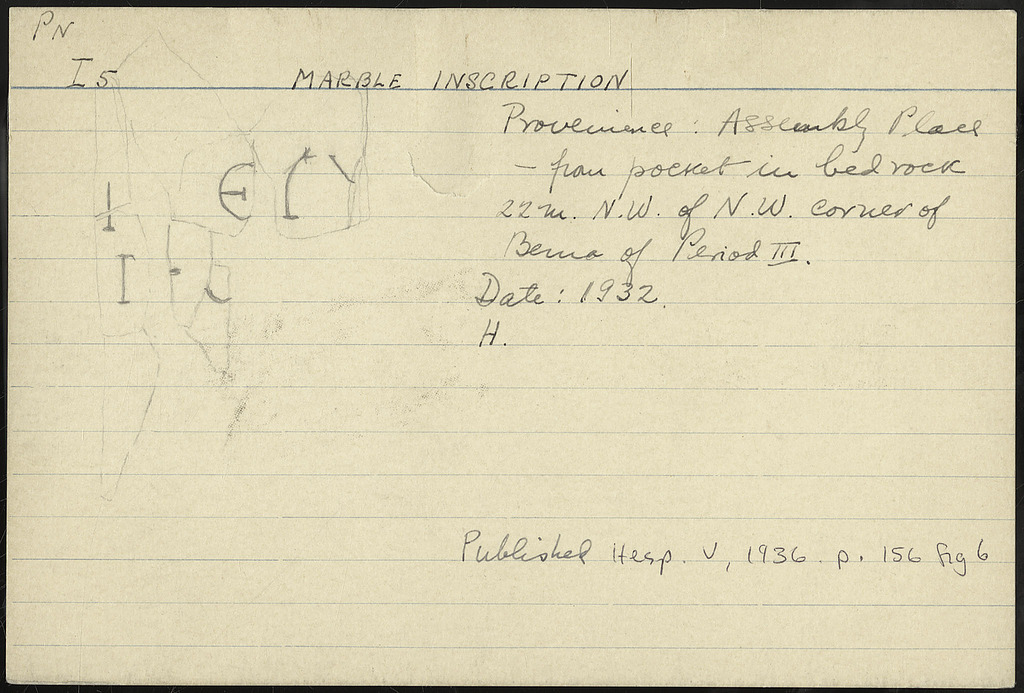 PN
I 5
MARBLE INSCRIPTION
Provenience: Assembly Place
– from pocket in bedrock
22 m. N.W. of N.W. corner of
Bema of Period III.
Date: 1932.
H.
Є Υ
Ι
Published Hesp. V, 1936 p. 156 fig 6